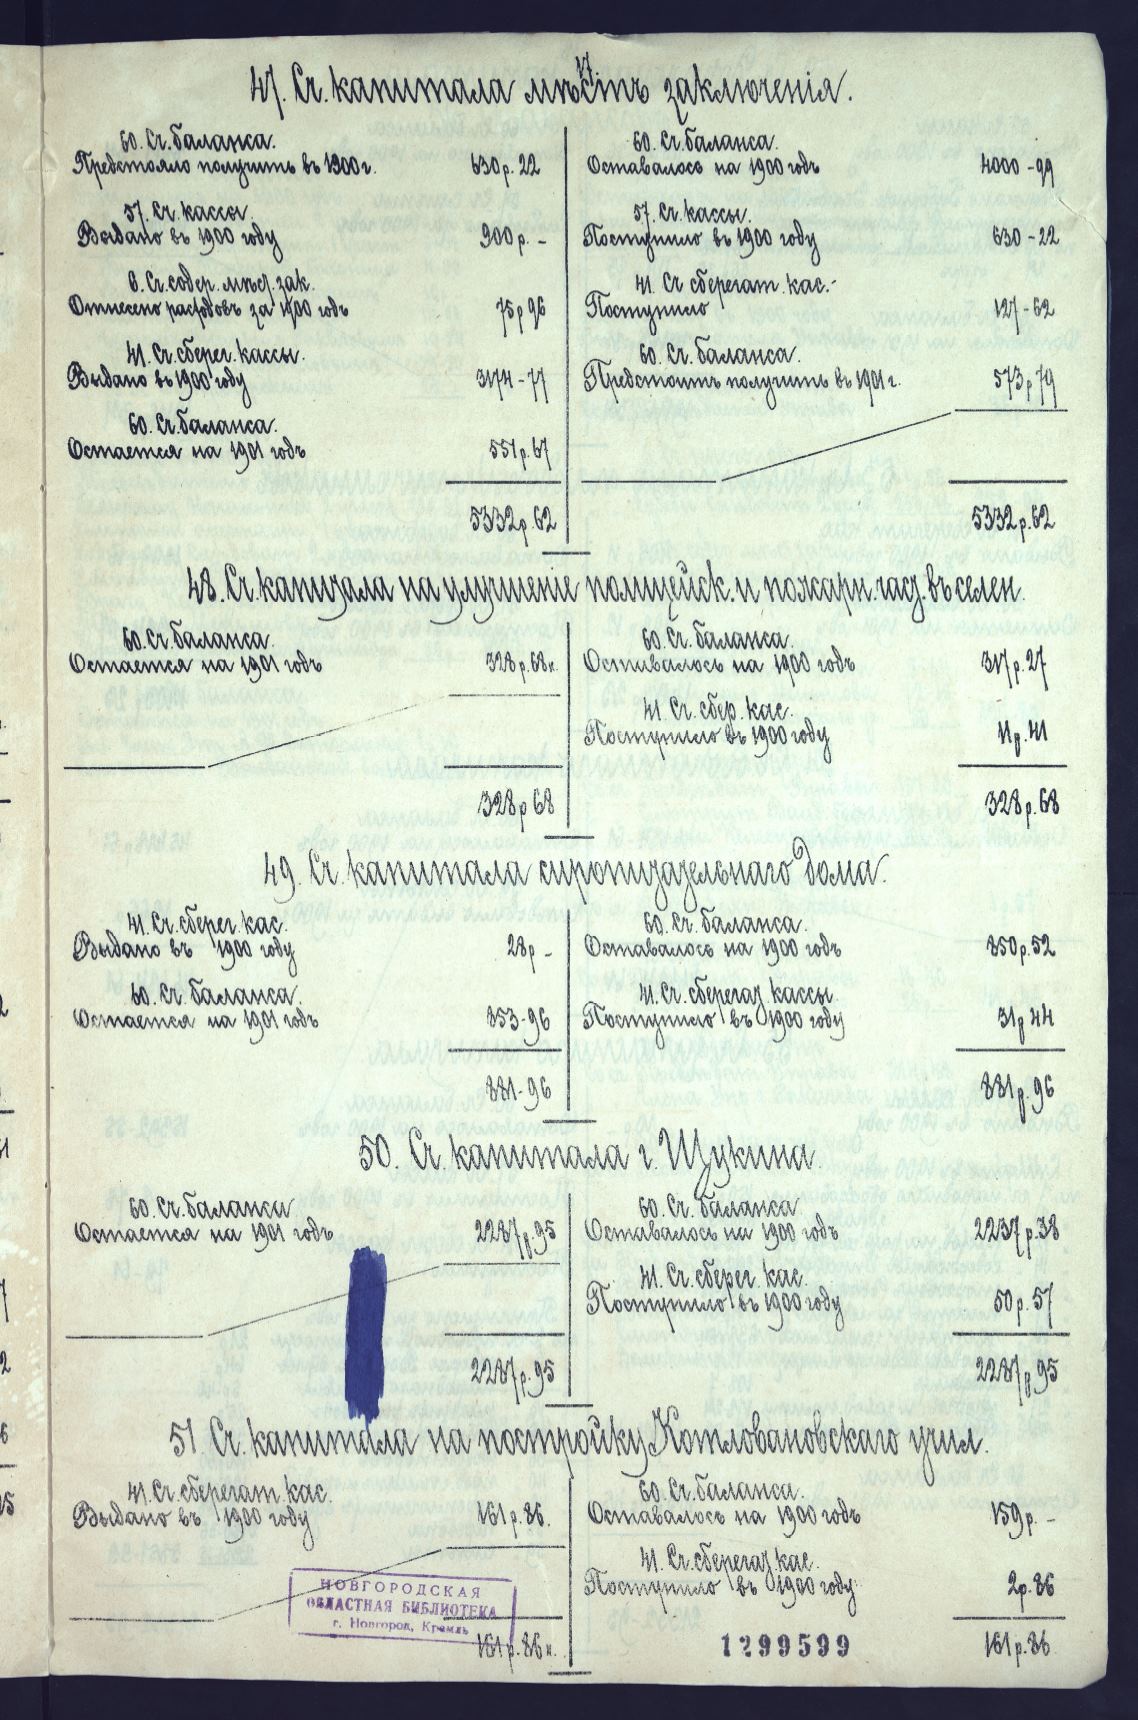 47. Сч. капитала мѣстъ заключенія.
60. Сч. баланса.
Предстояло получить въ 1900 г. 630 р. 22
57. Сч. кассы.
Выдано въ 1900 году 900 р. -
6. Сч. содер. мѣст. зак.
Отнесено расходовъ за 1900 годъ 75 р 96
41. Сч. сберег. кассы.
Выдано въ 1900 году 3174-77
60. Сч. баланса.
Остается на 1901 годъ 551 р. 67
5332 р. 62
60. Сч. баланса.
Оставалось на 1900 годъ 4000-99
57. Сч. кассы.
Поступило въ 1900 году 630-22
41. Сч. сберегат. кас.
Поступило 127-62
60. Сч. баланса.
Предстоитъ получить въ 1901 г. 573 р 79
5332 р. 62
48. Сч. капитала на улучшение полицейск. и пожарн. част. въ селен.
60. Сч. баланса.
Остается на 1901 годъ 328 р. 68 к.
328 р 68
60. Сч. баланса.
Оставалось на 1900 годъ 317 р. 27
41. Сч. сбер. кас.
Поступило въ 1900 году 11 р. 41
328 р. 68
49. Сч. капитала сиропитательнаго дома.
41. Сч. сберег. кас.
Выдано въ 1900 году 28 р -
60. Сч. баланса.
Остается на 1901 годъ 853-96
881-96
60. Сч. баланса.
Оставалось на 1900 годъ 850 р. 52
41. Сч. сберегат. кассы.
Поступило въ 1900 году 31 р 44
881 р. 96
50. Сч. капитала г. Щукина
60. Сч. баланса.
Остается на 1901 годъ 2287 р 95
2287 р. 95
60. Сч. баланса
Оставалось на 1900 годъ 2237 р. 38
41. Сч. сберег. кас.
Поступило въ 1900 году 50 р. 57
2287 р 95
51. Сч. капитала на постройку Котловановскаго учил.
41. Сч. сберегат. кас.
Выдано въ 1900 году 161 р. 86.
161 р. 86 к.
60. Сч. баланса.
Оставалось на 1900 годъ 159 р. -
41. Сч. сберегат. кас.
Поступило въ 1900 году 2 р. 86
161 р. 86
НОВГОРОДСКАЯ
ОБЛАСТНАЯ БИБЛИОТЕКА
г. Новгород, Кремль
1299599